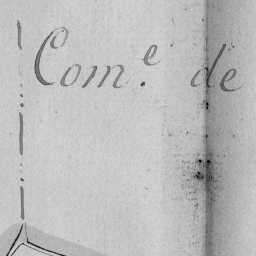 Com.e de